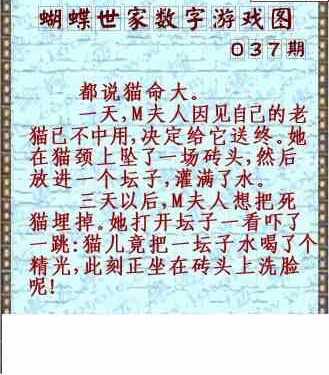 蝴蝶世家数字游戏图
037期
都说猫命大。
一天,M夫人因见自己的老
猫已不中用,决定给它送终。她
在猫颈上坠了一场砖头,然后
放进一个坛子,灌满了水。
三天以后,M夫人想把死
猫埋掉。她打开坛子一看吓了
一跳:猫儿竟把一坛子水喝了个
精光,此刻正坐在砖头上洗脸
呢!